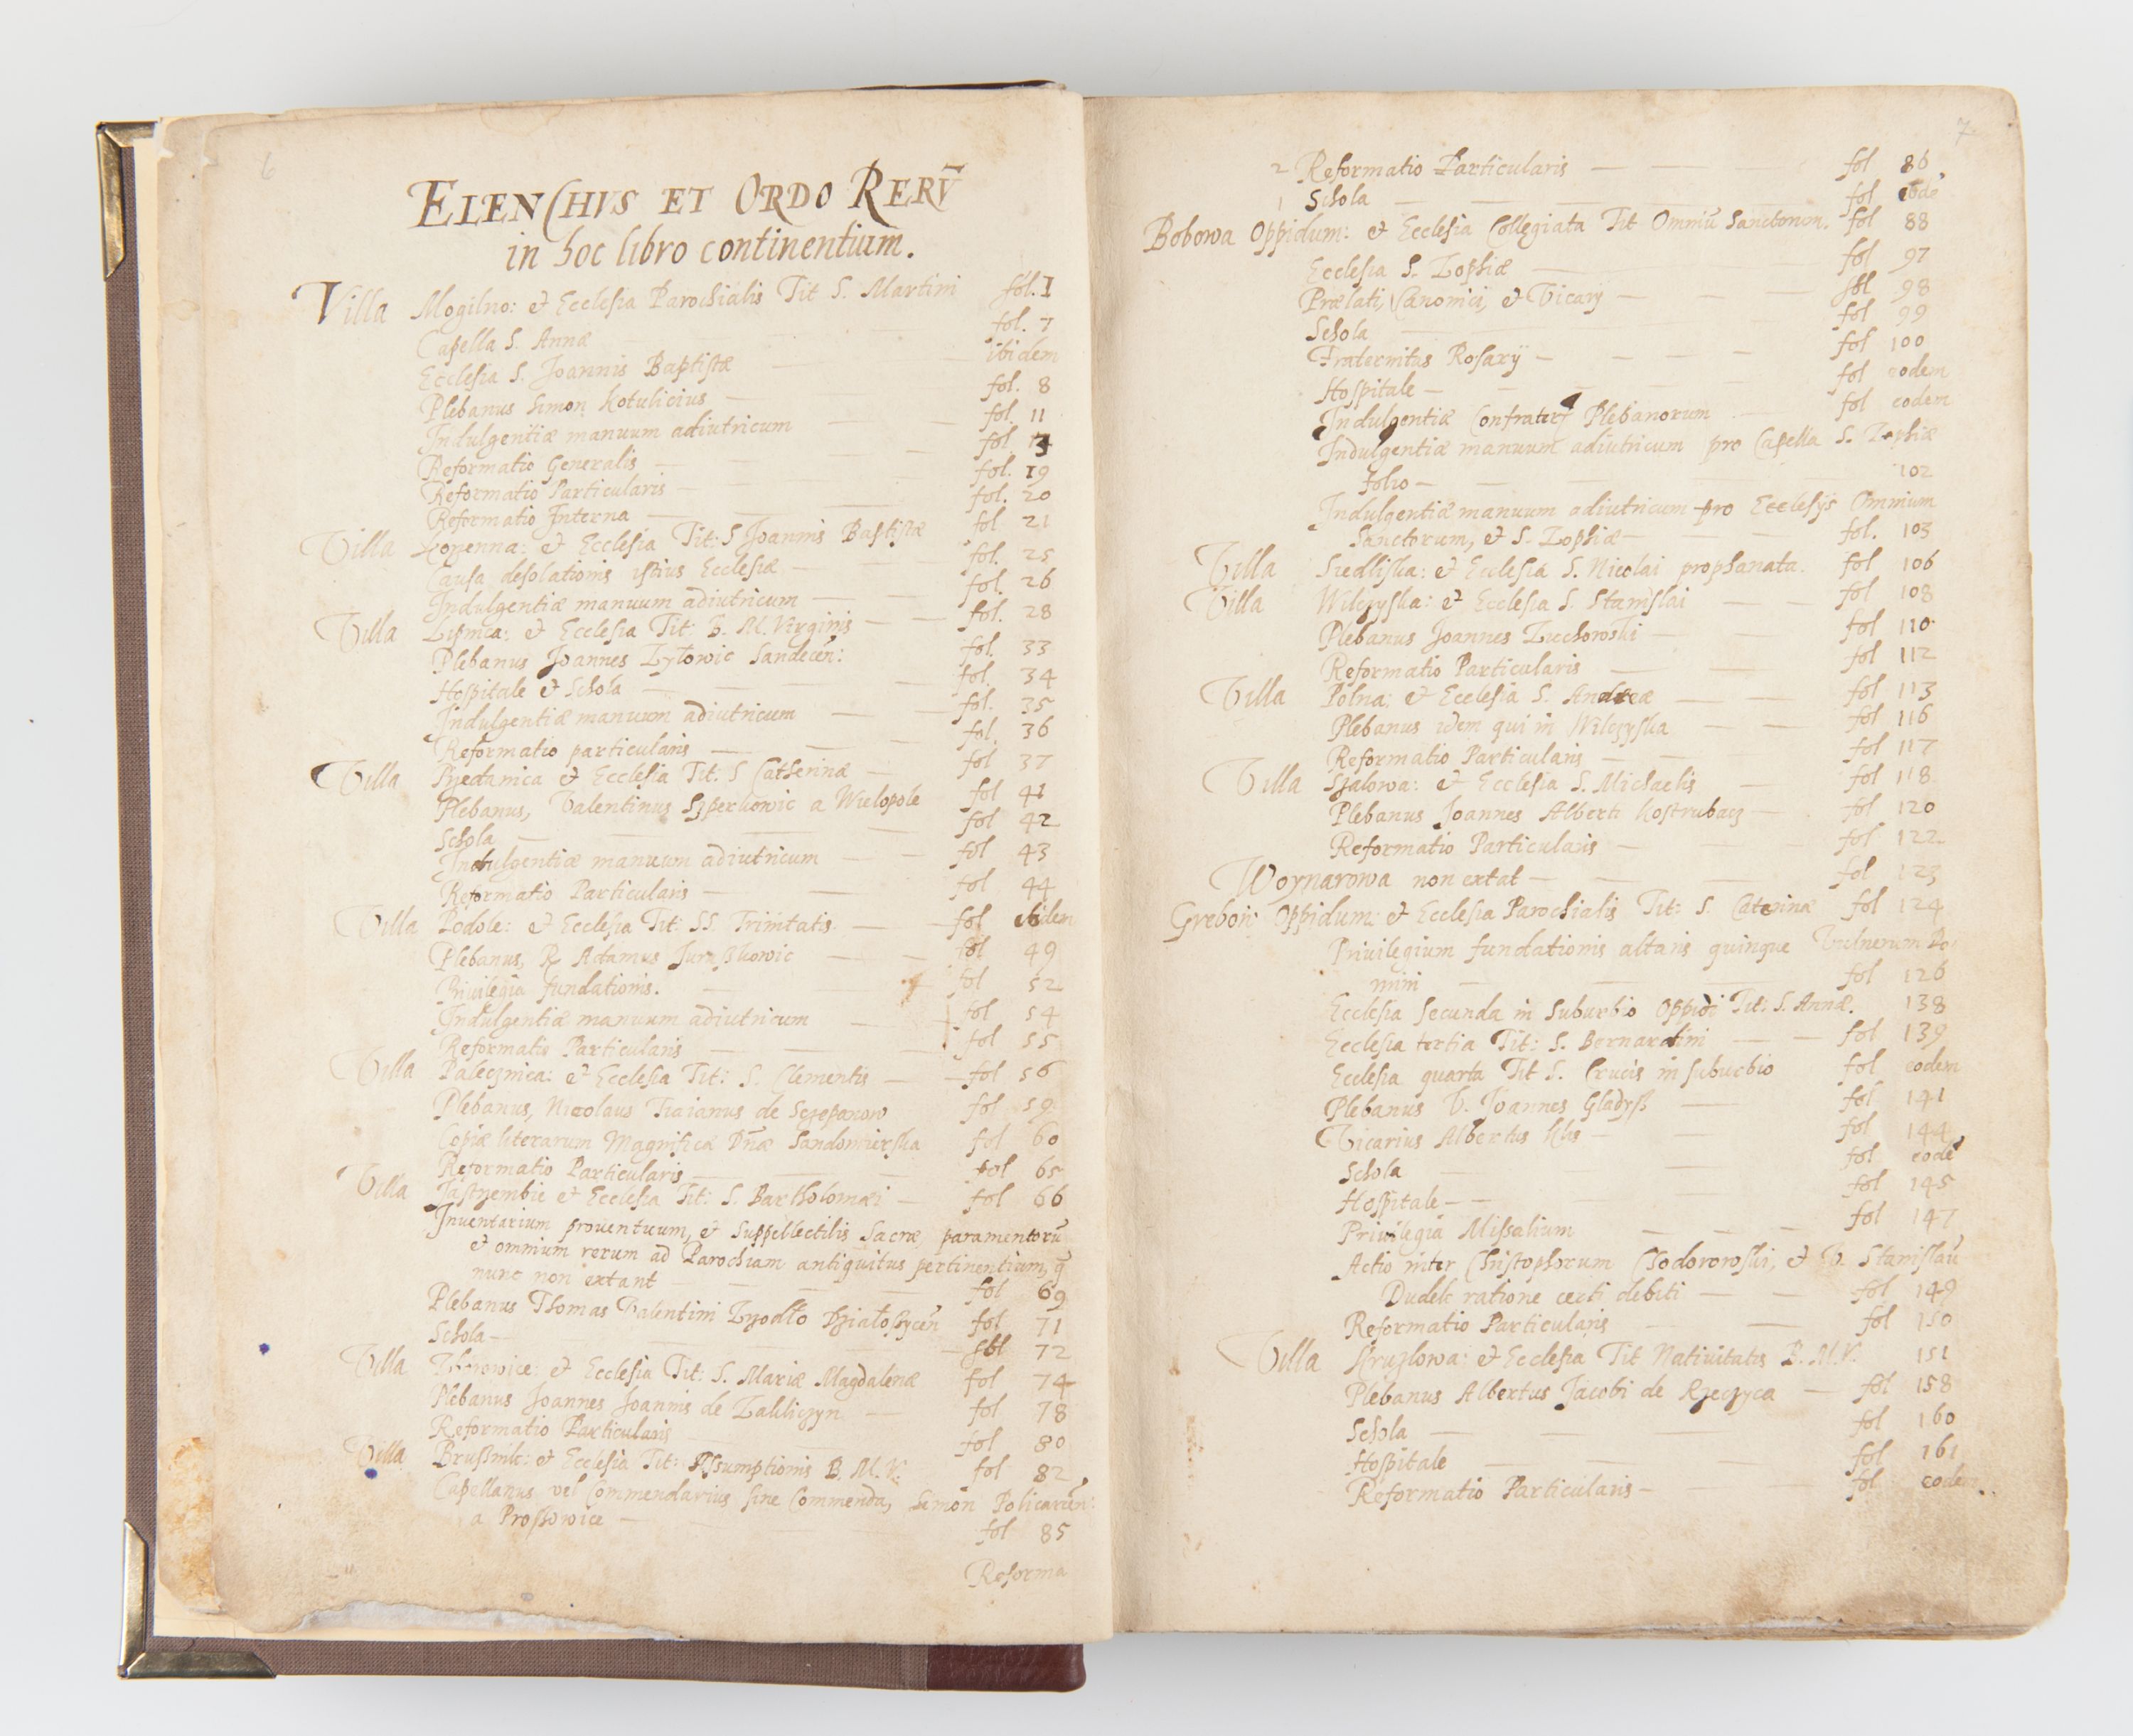 6
ELENCHVS ET ORDO RERṼ
in hoc libro continentium.
Villa Mogilno: et Ecclesia Parochialis Tit S. Martini fol. 1
Capella S. Annæ fol. 7
Ecclesia S. Joannis Baptistæ ibidem
Plebanus Simon Kotulicius fol. 8
Indulgentiæ manuum adiutricum fol. 11
Reformatio Generalis fol.
Reformatio Particularis fol. 19
Reformatio Interna fol. 20
Villa et Ecclesia Tit: S Joannis Baptistæ fol. 21
Causa desolationis istius Ecclesiæ fol. 25
Indulgentiæ manuum adiutricum fol. 26
Villa Lipnica: et Ecclesia Tit: B. M. Virginis fol. 28
Plebanus Joannes Zytowic Sandecen: fol. 33
Hospitale et Schola fol. 34
Indulgentiæ manuum adiutricum fol. 35
Reformatio particularis fol. 36
Villa et Ecclesia Tit: S Catherinæ fol 37
Plebanus, Valentinus a Wielopole fol 41
Schola fol 42
Indulgentiæ manuum adiutricum fol 43
Reformatio Particularis fol 44
Villa Podole: et Ecclesia Tit: SS. Trinitatis fol ibidem
Plebanus, R Adamus fol 49
Privilegia fundationis. fol 52
Indulgentiæ manuum adiutricum fol 54
Reformatio Particularis fol 55
Villa Palecznica: et Ecclesia Tit: S. Clementis fol 56
Plebanus, Nicolaus Traianus de Sczepanow fol 59
Copiæ literarum Magnificæ Dñæ Sandomierska fol 60
Reformatio Particularis fol 65
Villa Jastrzembie et Ecclesia Tit: S. Bartholomæi fol 66
Inventarium proventuum, et Suppellectilis Sacræ, paramentorũ
et omnium rerum ad Parochiam antiquitus pertinentium, q̃
nunc non extant fol 69
Plebanus Thomas Valentini fol 71
Schola fol 72
Villa et Ecclesia Tit: S. Mariæ Magdalenæ fol 74
Plebanus Joannes Joannis de Zakliczyn fol 78
Reformatio Particularis fol 80
Villa Brusnik: et Ecclesia Tit: Assumptionis B. M. V. fol 82
Capellanus vel Commendarius sine Commenda, Simon
a Proszowice fol 85
Reforma
7
2 Reformatio Particularis fol 86
1 Schola fol eodẽ
Bobowa Oppidum: et Ecclesia Collegiata Tit Omniũ Sanctorum. fol 88
Ecclesia S. Zophiæ fol 97
Prælati, Canonici, et Vicarij fol 98
Schola fol 99
Fraternitas Rosarij fol 100
Hospitale fol eodem
Indulgentiæ Plebanorum fol eodem
Indulgentiæ manuum adiutricum pro Capella S. Zophiæ
folio 102
Indulgentiæ manuum adiutricum pro Ecclesijs Omnium
Sanctorum, et S. Zophiæ fol. 103
Villa Siedliska: et Ecclesia S. Nicolai prophanata. fol 106
Villa Wilczyska: et Ecclesia S. Stanislai fol 108
Plebanus Joannes Zuchowski fol 110
Reformatio Particularis fol 112
Villa Polna: et Ecclesia S. Andreæ fol 113
Plebanus idem qui in Wilczyska fol 116
Reformatio Particularis fol 117
Villa Szalowa: et Ecclesia S. Michaelis fol 118
Plebanus Joannes Alberti Kostrubacz fol 120
Reformatio Particularis fol 122
Woynarowa non extat fol 123
Grebow Oppidum: et Ecclesia Parochialis Tit: S. Caterinæ fol 124
Privilegium fundationis altaris quinque Vulnerum Do
mini fol 126
Ecclesia Secunda in Suburbio Oppidi Tit: S. Annæ. 138
Ecclesia tertia Tit: S. Bernardini fol 139
Ecclesia quarta Tit S. Crucis in suburbio fol eodem
Plebanus V. Joannes Gladysz fol 141
Vicarius Albertus fol 144
Schola fol eodẽ
Hospitale fol 145
Privilegia Missalium fol 147
Actio inter Christophorum Chodorowski, et V. Stanislaũ
Dudek ratione certi debiti fol 149
Reformatio Particularis fol 150
Villa Kruzlowa: et Ecclesia Tit Nativitatis B. M. V. 151
Plebanus Albertus Jacobi de Rzeczyca fol 158
Schola fol 160
Hospitale fol 161
Reformatio Particularis fol eodem